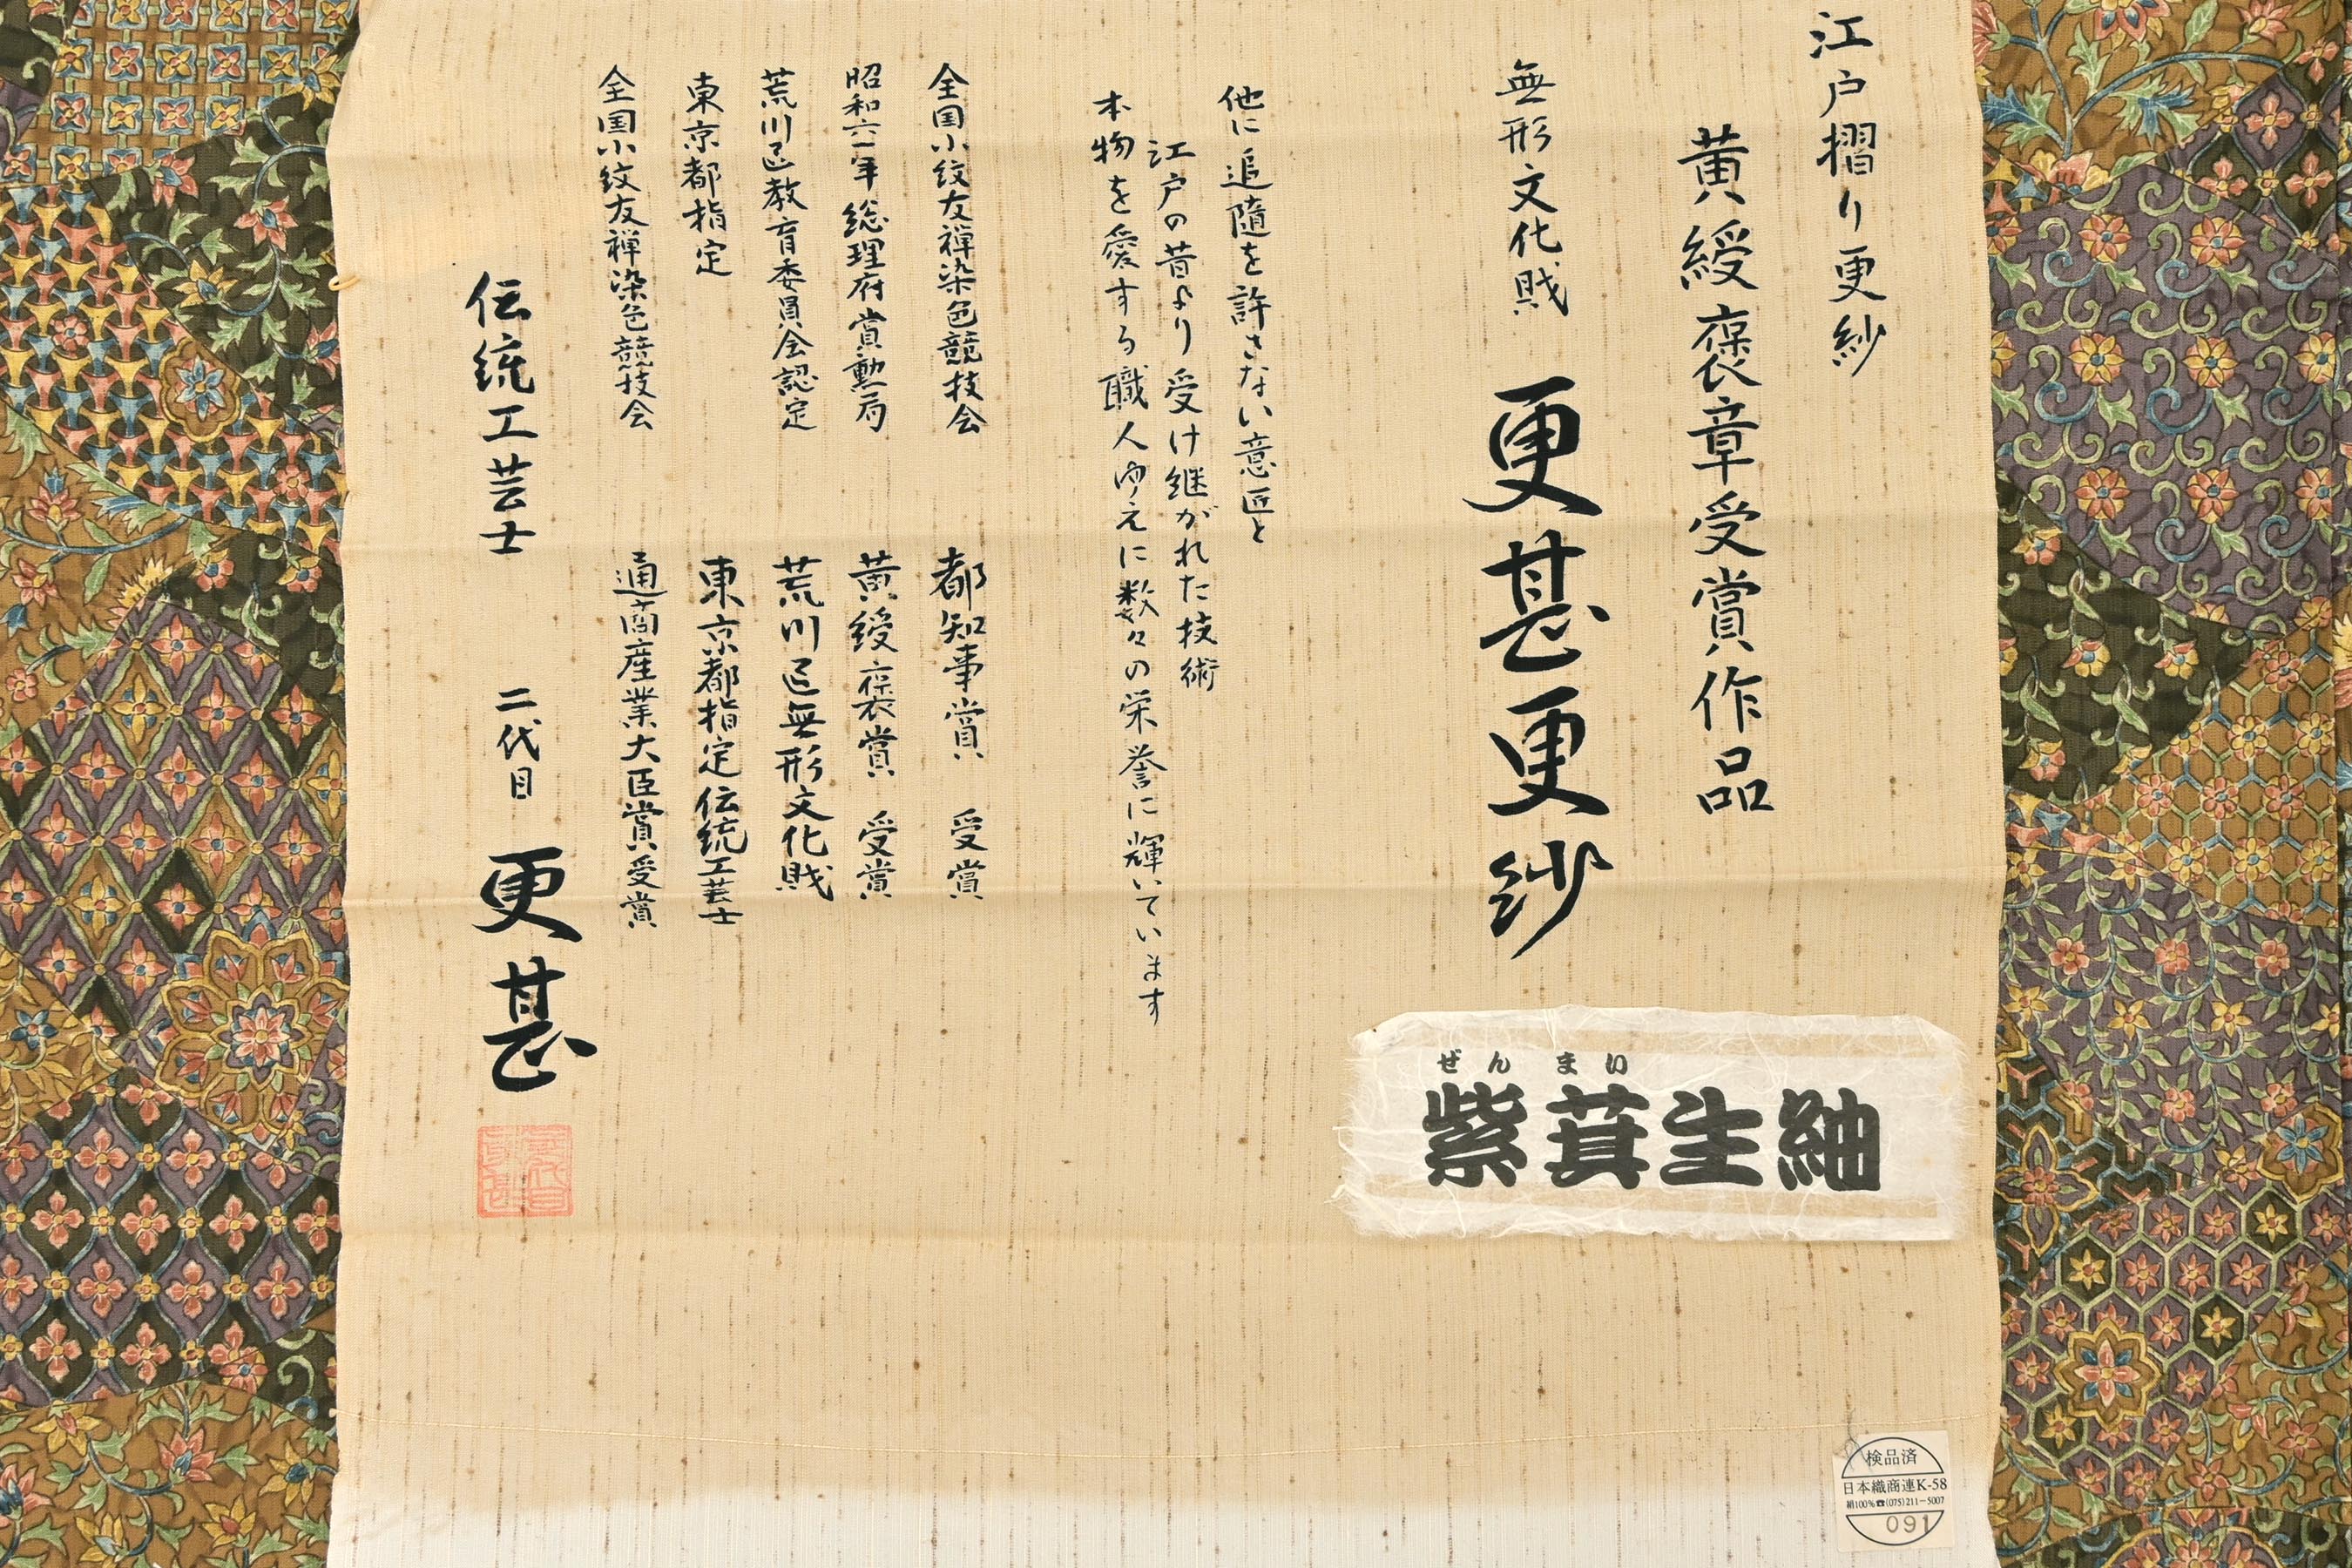 江戸摺り更紗
黄綬褒章受賞作品
無形文化財 更甚更紗
他に追随を許さない意匠と
江戸の昔より受け継がれた技術
本物を愛する職人ゆえに数々の栄誉に輝いています
全国小紋友禅染色競技会 都知事賞 受賞
昭和六一年総理府賞勲局 黄綬褒賞 受賞
荒川区教育委員会認定 荒川区無形文化財
東京都指定 東京都指定伝統工芸士
全国小紋友禅染色競技会 通商産業大臣賞受賞
伝統工芸士 二代目 更甚
ぜんまい
紫萁生紬
検品済
日本織商連K-58
絹100%☎(075)211-5007
091